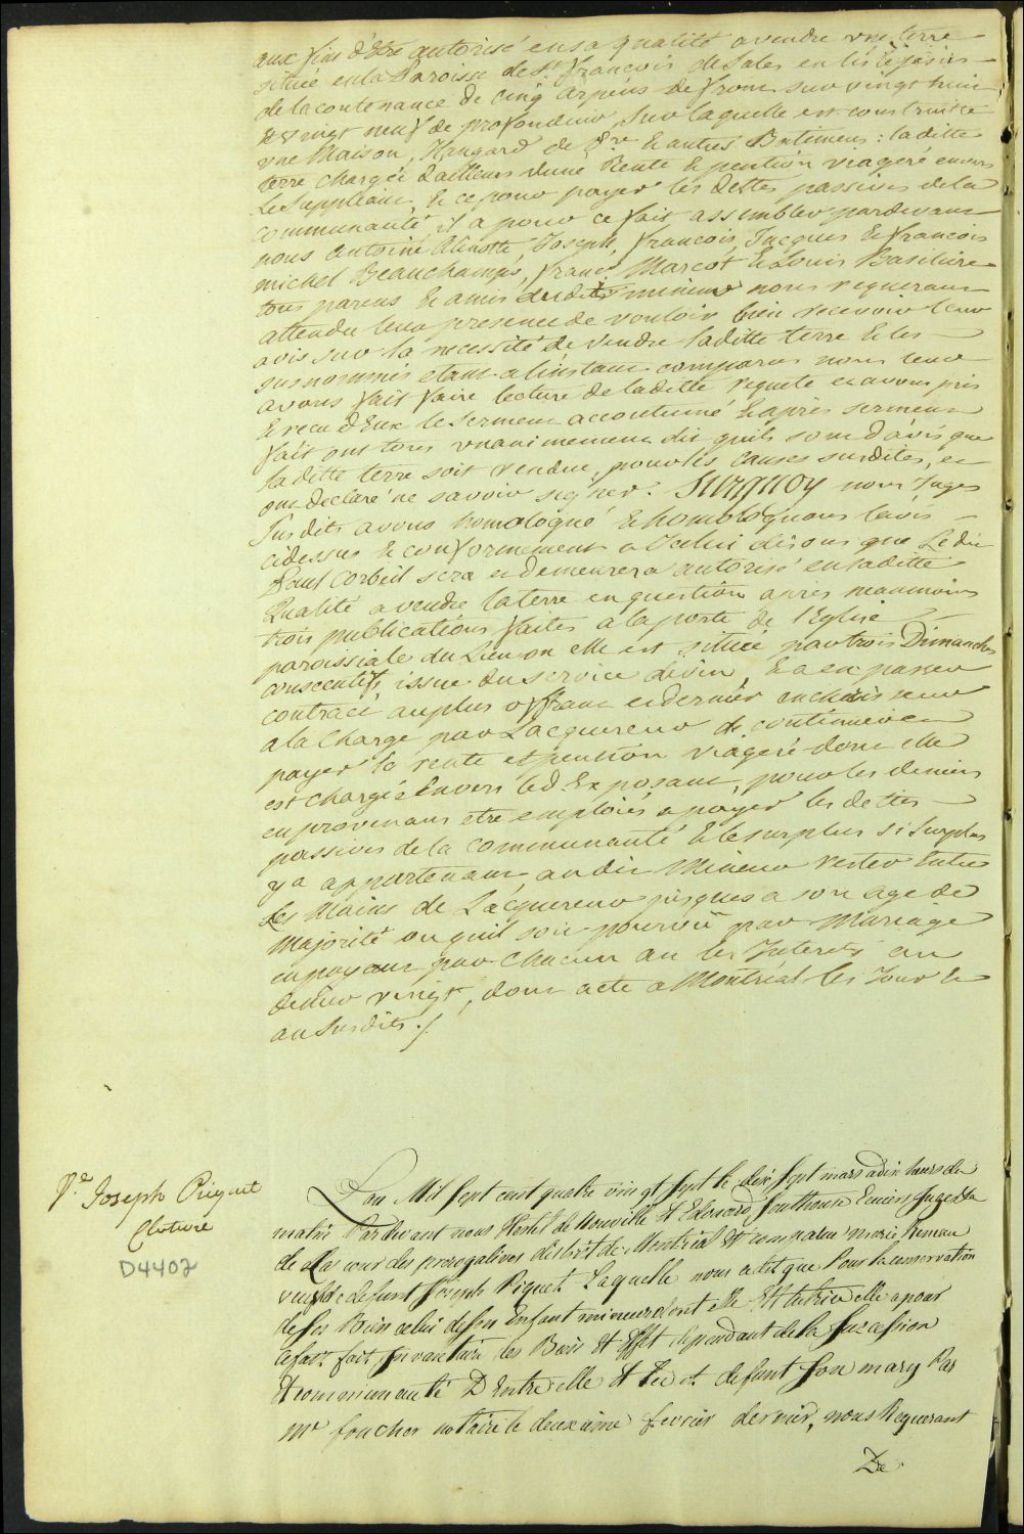 aux fins d'Etre autorisé en sa qualité a vendre une terre
située en la Paroisse de St. François de Sales en l'isle jésus
de la contenance de cinq arpens de front sur vingt huit
& vingt neuf de profondeur, sur laquelle est construitte
une Maison, Hangard de & autres Batimens: laditte
terre chargée d'ailleurs d'une Rente & pention viageré envers
le Suppliant, & ce pour payer les dettes passives de la
communauté il a pour ce fait assembler pardevant
nous antoine Joseph, francois, Jacques & francois
michel Beauchamps, franc. Marcot & Louis Basiliere
tous parens & amis dudit mineur nous requerant
attendu leur presence de vouloir bien recevoir leur
avis sur la necessité de vendre laditte terre & les
susnommés etant a l'instant comparus nous leur
avons fait faire lecture de laditte requete et avons pris
& recu d'Eux le serment accoutumé & après serment
fait ont tous unanimement dit quils sont d'avis que
laditte terre soit vendue, pour les causes susdites, et
ont declaré ne savoir signer. Surquoy nous Juges
susdits avons homologué & homologuons l'avis
cidessus & conformement a Icelui disons que Le dit
Paul Corbeil sera et demeurera autorisé en saditte
Qualité a vendre la terre en question après neanmoins
trois publications faites a la porte de l'Eglise
paroissiale du Lieu ou elle est située par trois Dimanches
consecutifs, issue du service divin, & a en passer
contract au plus offrant et dernier encherisseur
a la Charge par L'acquereur de continuer &
payer la rente et pention viageré dont elle
est chargée Envers led Exposant, pour les deniers
en provenans etre emploiés a payer les dettes
passives de la communauté & le surplus si surplus
y a appartenant audit Mineur rester Entre
Les Mains de L'acquereur jusques a son age de
Majorité ou quil soit pourvû par Mariage
en payant par chacun an les Interets au
denier vingt, dont acte a Montréal les Jour &
an susdits./
Joseph Piquet
Cloture
D4402
L'an Mil Sept cent quatre vingt Sept le dix Sept mars a dix heurs du
matin Pardevant nous Hertel de Rouville & Edouard Southouse Ecuiers Juges
de la cour des prerogatives district de Montréal est comparu marie
veuve de defunt Joseph Piquet Laquelle nous a dit que Pour la conservation
de ses Bien celui de son Enfant mineur dont elle Est tutrice elle a pour
fait Inventaire les Bien & Effet dependant de la Succession
& communauté D Entre elle & Led. defunt Son mary Par
Mr foucher notaire le deuxieme fevrier dernier, nous Requerant
De